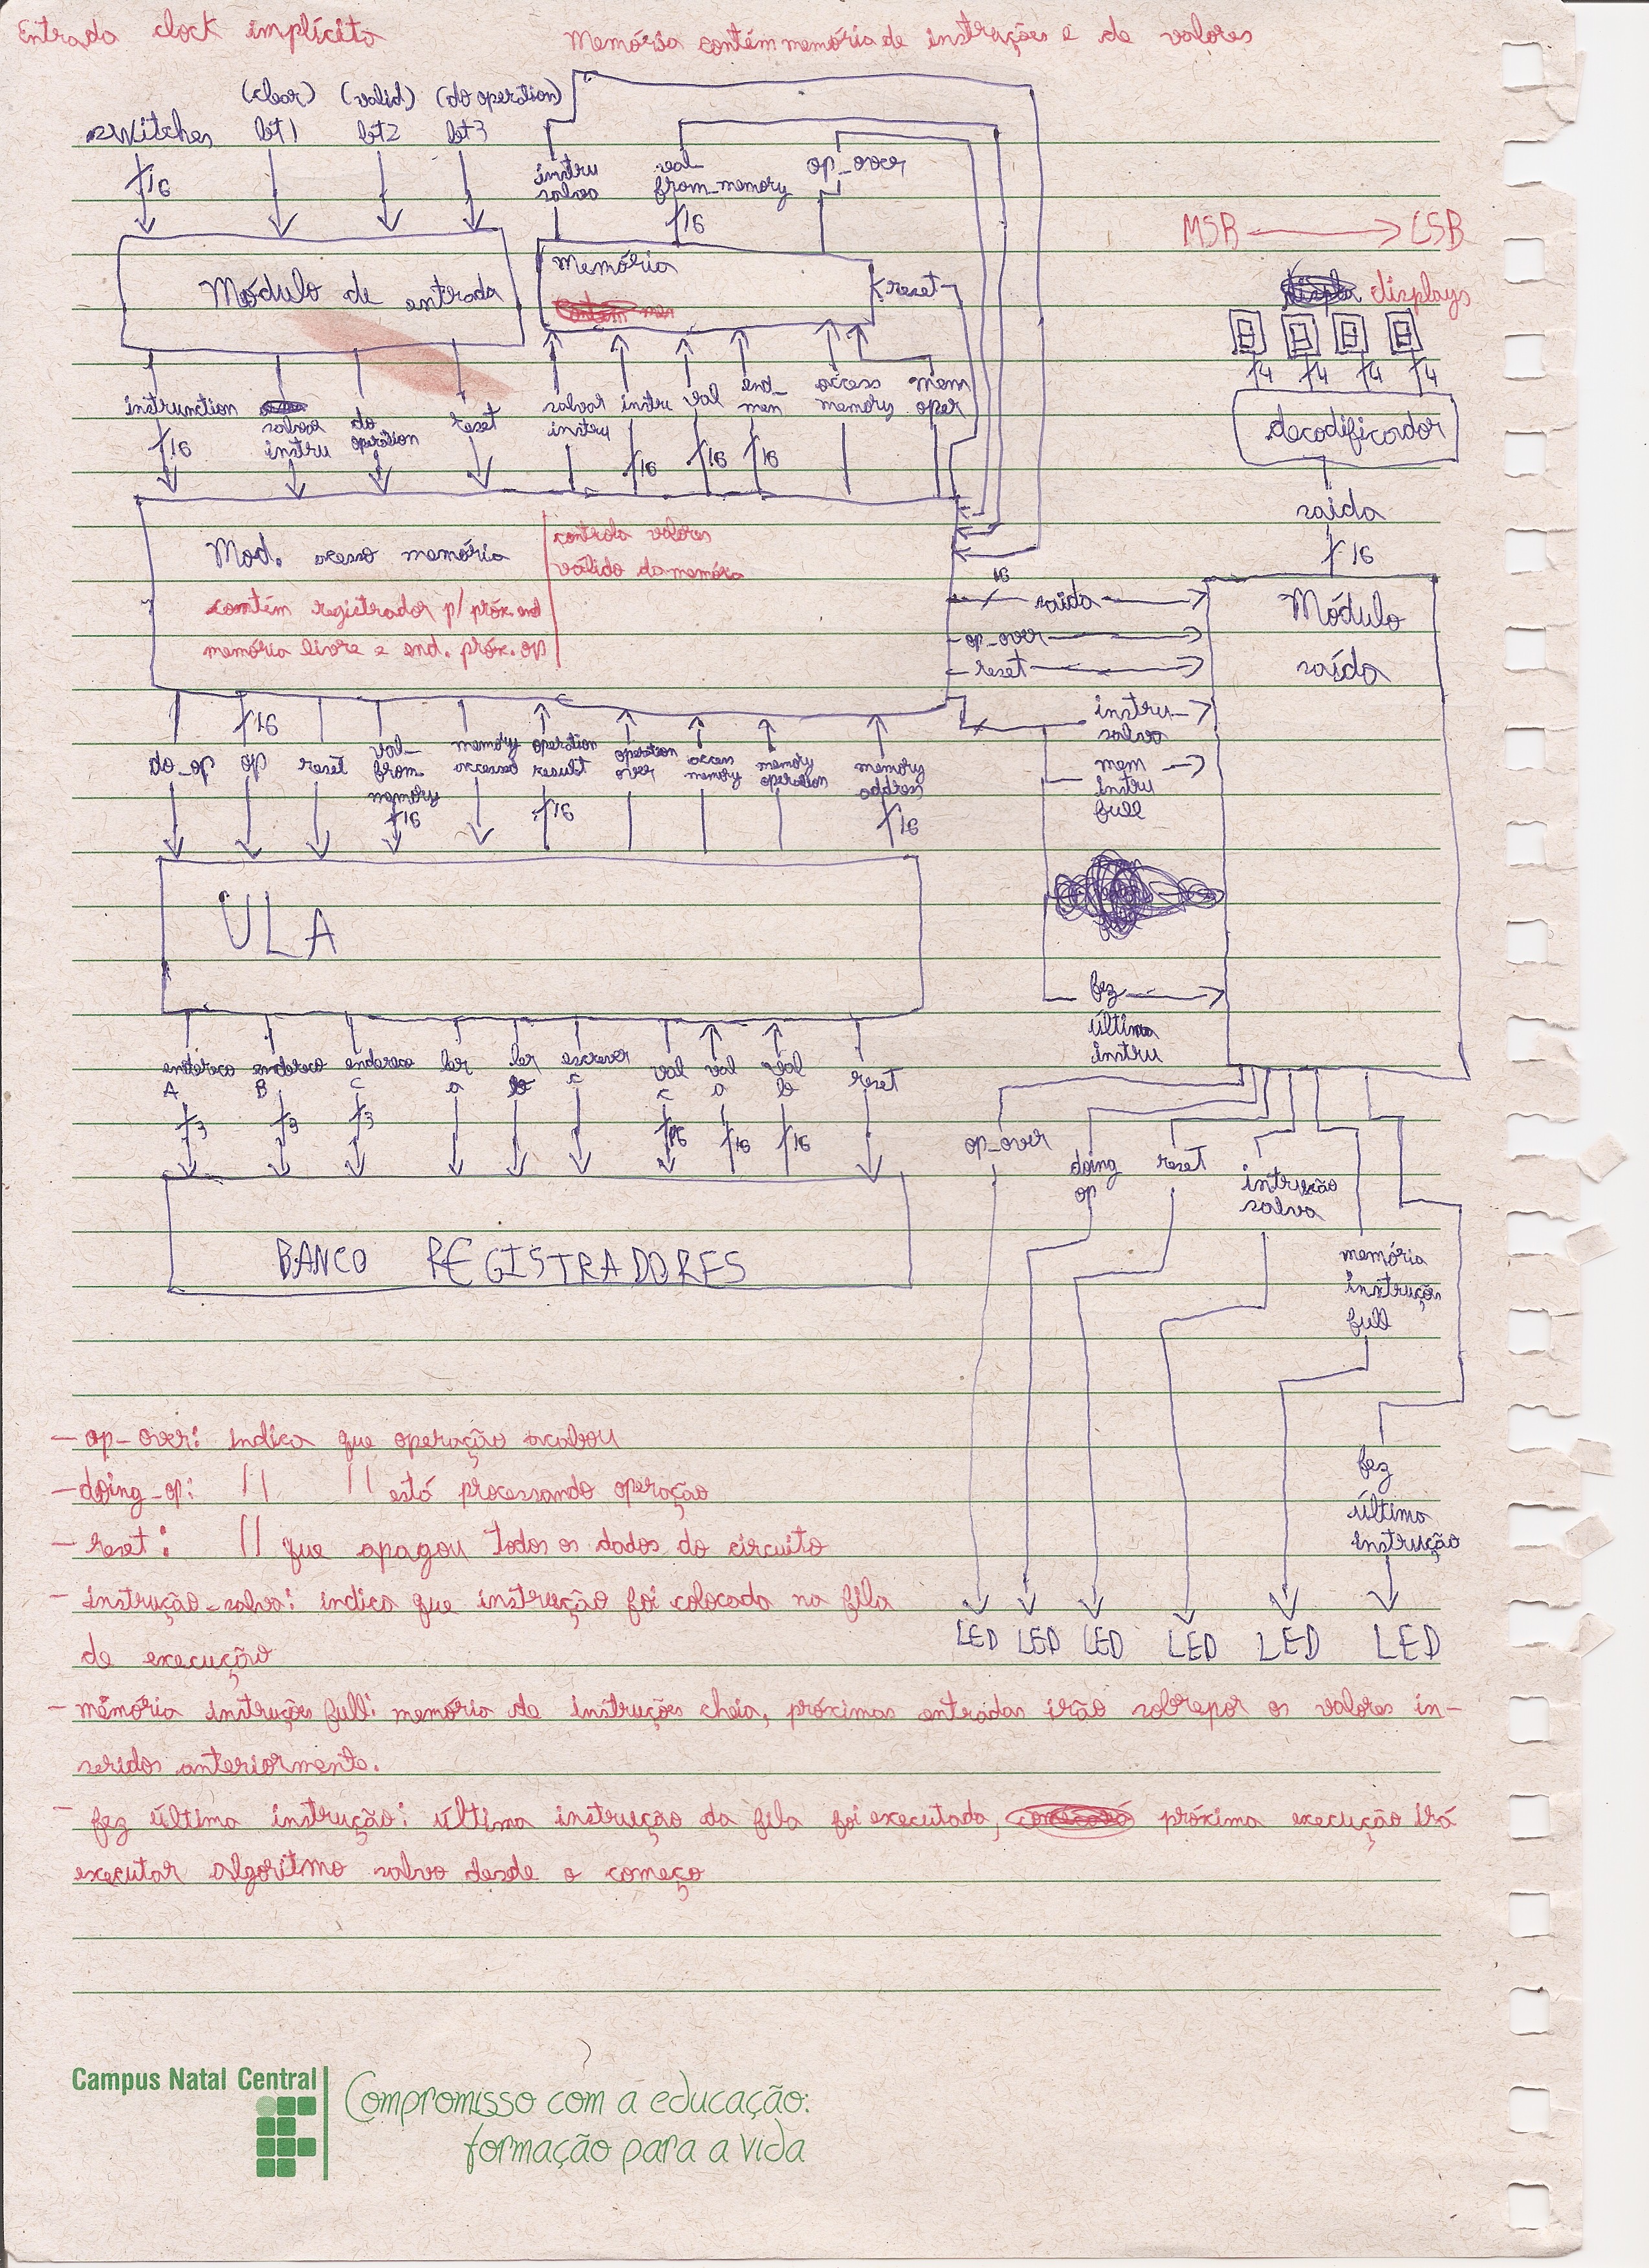 Entrada clock implícito
Memória contém memória de instruções e de valores
(clear) (valid) (do operation)
switches bt1 bt2 bt3
16
instru salvo
val from_memory
16
op_over
MSB → LSB
displays
4 4 4 4
decodificador
saida
16
Módulo de entrada
Memória
reset
instrunction
16
salvar instru
do operation
reset
salvar instru
instru
16
val
16
end_ mem
16
access memory
mem oper
Mod. acesso memória
contém registrador p/ próx. end
memória livre e end. próx. op
controla valores
válido da memória
16
saida
op_over
reset
instru_ salva
mem instru full
fez última instru
Módulo
saída
do_op
op
16
reset
val_ from_ memory
16
memory accessed
operation result
16
operation over
access memory
memory operation
memory address
16
ULA
endereco A
3
endereco B
3
endereco C
3
ler a
ler b
escrever c
val c
16
val a
16
val b
16
reset
BANCO REGISTRADORES
op_over
doing op
reset
intrução salva
memória instruções full
fez última instrução
LED LED LED LED LED LED
- op_over: indica que operação acabou
- doing_op: // // está processando operação
- reset: // que apagou todos os dados do circuito
- instrução_salva: indica que instrução foi colocada na fila
de execução
- memória instruções full: memória de instruções cheia, próximas entradas irão sobrepor os valores in-
seridos anteriormente.
- fez última instrução: última instrução da fila foi executada, próxima execução irá
executar algoritmo salvo desde o começo
Campus Natal Central
Compromisso com a educação:
formação para a vida